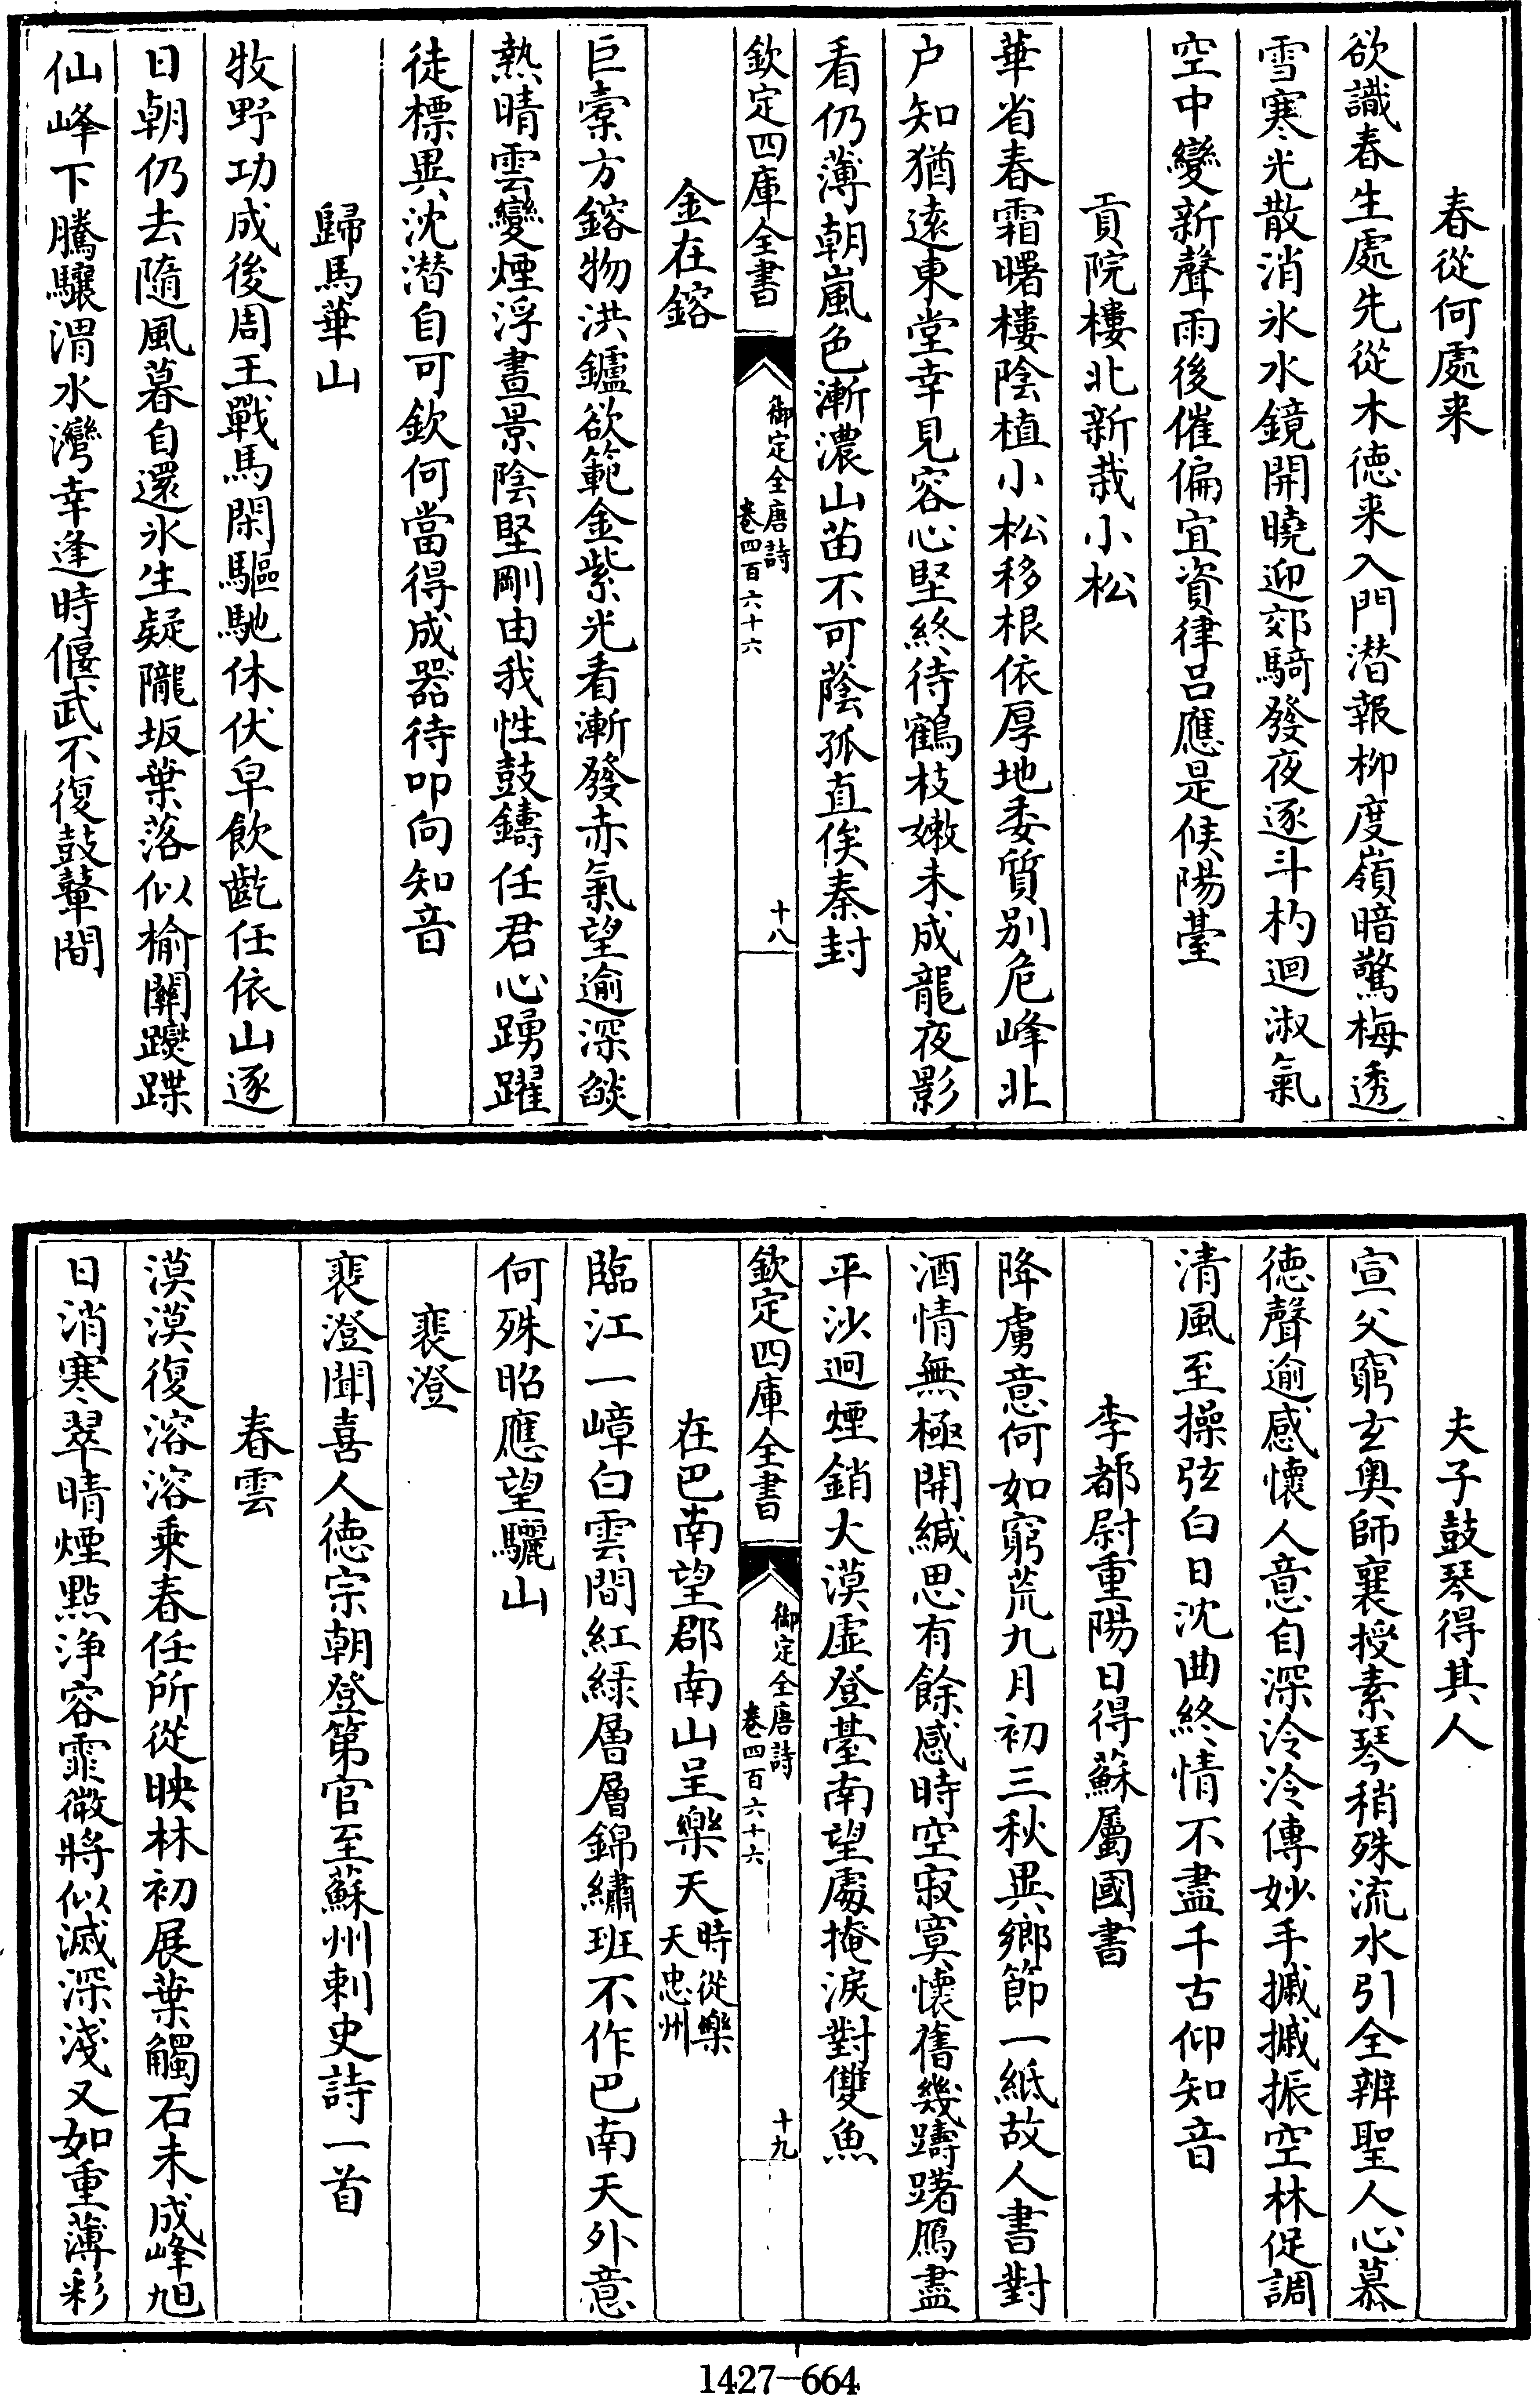 春從何處来
欲識春生處先從木徳来入門潛報栁度嶺暗驚梅透
雪寒光散消氷水鏡開曉迎郊騎發夜逐斗杓迴淑氣
空中變新聲雨後催偏宜資律呂應是候陽臺
貢院樓北新栽小松
華省春霜曙樓陰植小松移根依厚地委質别危峰北
户知猶遠東堂幸見容心堅終待鶴枝嫩未成龍夜影
看仍薄朝嵐色漸濃山苗不可蔭孤直俟秦封
欽定四庫全書
御定全唐詩
卷四百六十六
十八
金在鎔
巨橐方鎔物洪鑪欲範金紫光看漸發赤氣望逾深燄
熱晴雲變煙浮晝景陰堅剛由我性鼓鑄任君心踴躍
徒標異沈潛自可欽何當得成器待叩向知音
歸馬華山
牧野功成後周王戰馬閑驅馳休伏皁飲齕任依山逐
日朝仍去隨風暮自還氷生疑隴坂葉落似榆關躞蹀
仙峰下騰驤渭水灣幸逢時偃武不復鼓鼙間
夫子鼓琴得其人
宣父窮玄奥師襄授素琴稍殊流水引全辨聖人心慕
徳聲逾感懷人意自深泠泠傳妙手摵摵振空林促調
清風至操弦白日沈曲終情不盡千古仰知音
李都尉重陽日得蘇屬國書
降虜意何如窮荒九月初三秋異鄉節一紙故人書對
酒情無極開緘思有餘感時空寂寞懷舊幾躊躇鴈盡
平沙迥煙銷大漠虛登臺南望處掩淚對雙魚
欽定四庫全書
御定全唐詩
卷四百六十六
十九
在巴南望郡南山呈樂天時從樂天忠州
臨江一嶂白雲間紅緑層層錦繡班不作巴南天外意
何殊昭應望驪山
裴澄
裴澄聞喜人徳宗朝登第官至蘇州刺史詩一首
春雲
漠漠復溶溶乘春任所從映林初展葉觸石未成峰旭
日消寒翠晴煙點浄容霏微將似滅深淺又如重薄彩
1427-664